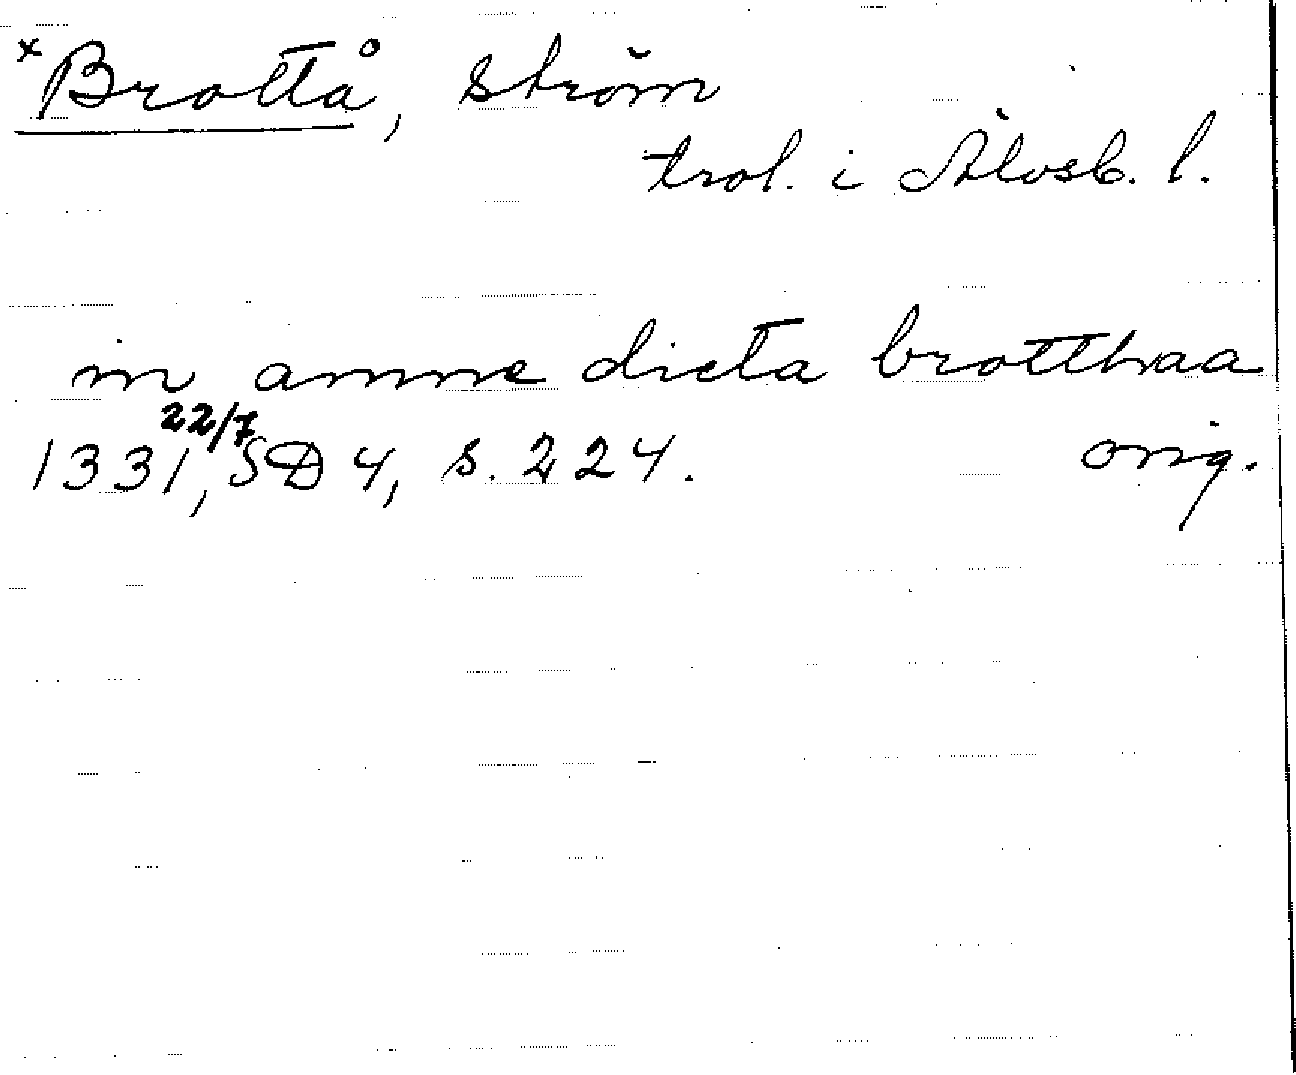 *Brottå, ström
trol. i Älvsb. l.
in amne dicta brotthaa
1331 22/7, SD 4, s. 224. orig.